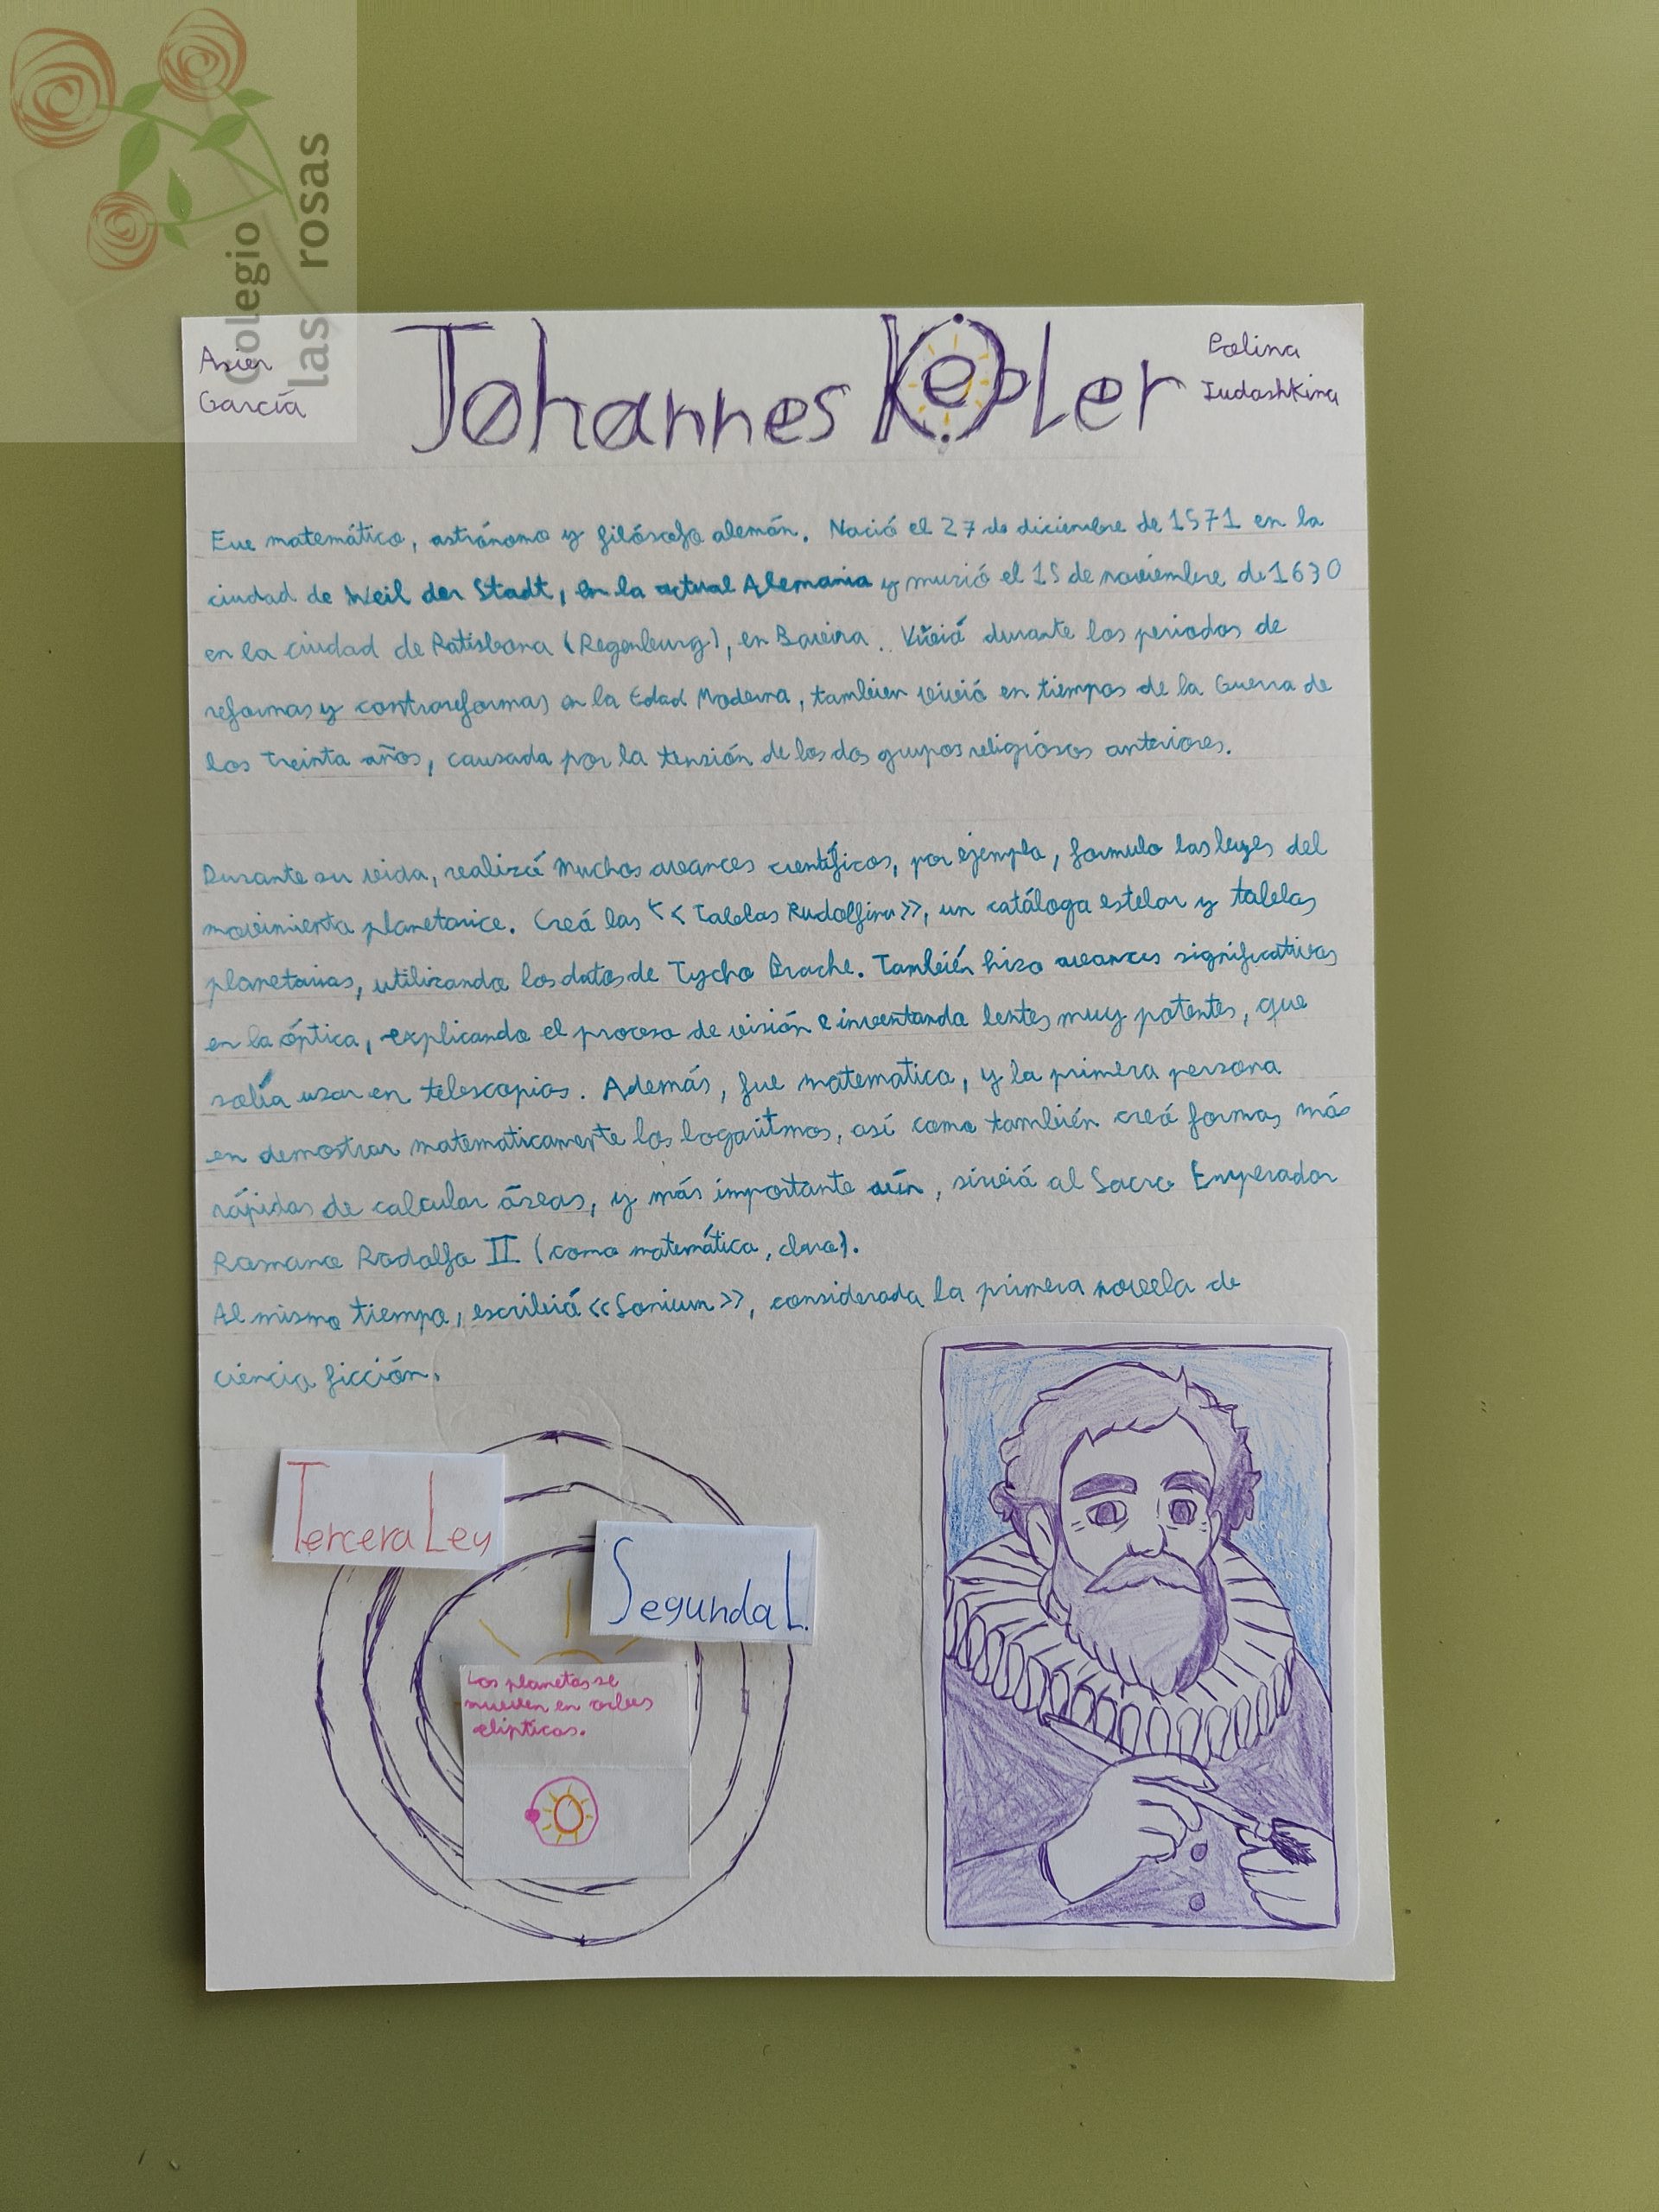 Colegio
las rosas
Asier
García
Johannes Kepler
Polina
Iudashkina
Fue matemático, astrónomo y filósofo alemán. Nació el 27 de diciembre de 1571 en la
ciudad de Weil der Stadt, en la actual Alemania y murió el 15 de noviembre de 1630
en la ciudad de Ratisbona (Regenburg), en Baviera. Vivió durante los periodos de
reformas y contrareformas en la Edad Moderna, también vivió en tiempos de la Guerra de
los treinta años, causada por la tensión de los dos grupos religiosos anteriores.
Durante su vida, realizó muchos avances científicos, por ejemplo, formulo las leyes del
movimiento planetario. Creó las <<Tablas Rudolfinas>>, un catálogo estelar y tablas
planetarias, utilizando los datos de Tycho Brache. También hizo avances significativos
en la óptica, explicando el proceso de visión e inventando lentes muy potentes, que
solía usar en telescopios. Además, fue matematico, y la primera persona
en demostrar matematicamente los logaritmos, así como también creó formas más
rápidas de calcular áreas, y más importante aún, sirvió al Sacro Emperador
Romano Rodolfo II (como matemático, claro).
Al mismo tiempo, escribió <<Somium>>, considerada la primera novela de
ciencia ficción.
Tercera Ley
Segunda L.
Los planetas se
mueven en orbes
elípticas.